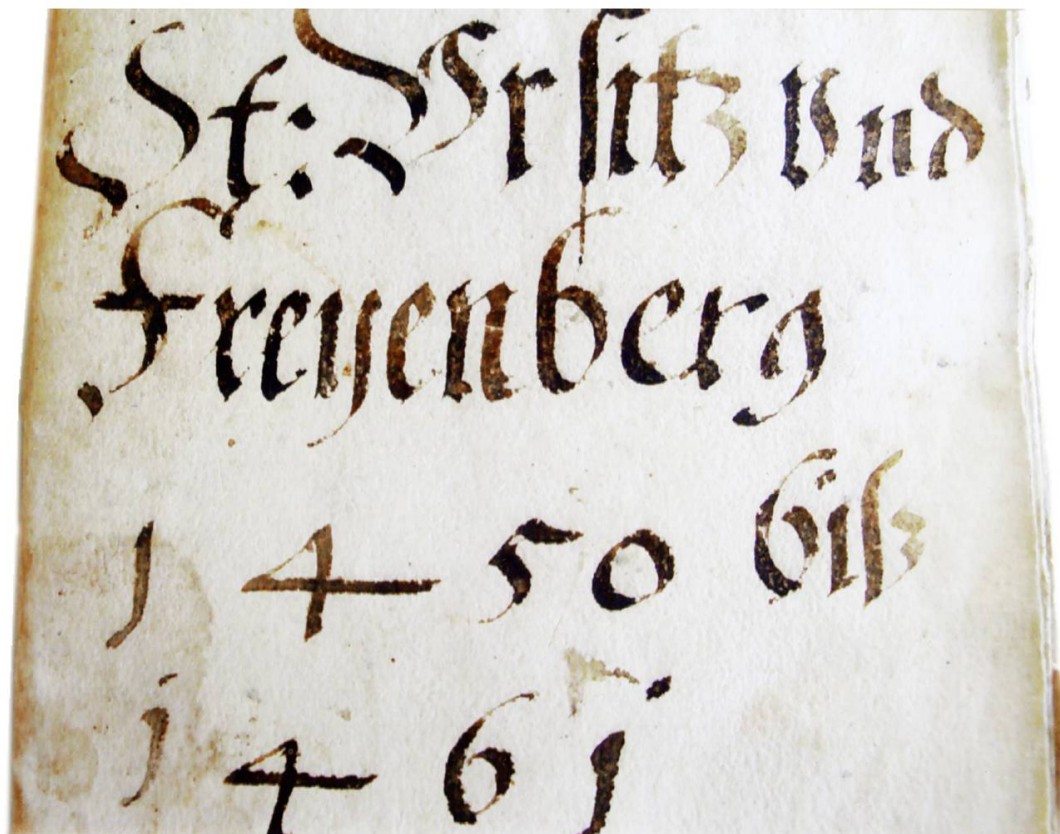 St: Vrsitz vnd
Freyenberg
1450 biß
1461